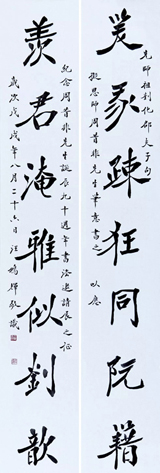 先師祖利化邵夫子句
笑我踈狂同阮籍
擬恩師周昔非先生筆意書之 以應
紀念周昔非先生誕辰九十週年書法邀請展之征
羨君淹雅似劉歆
歲次戊戌年八月二十六日汪鵬輝敬識